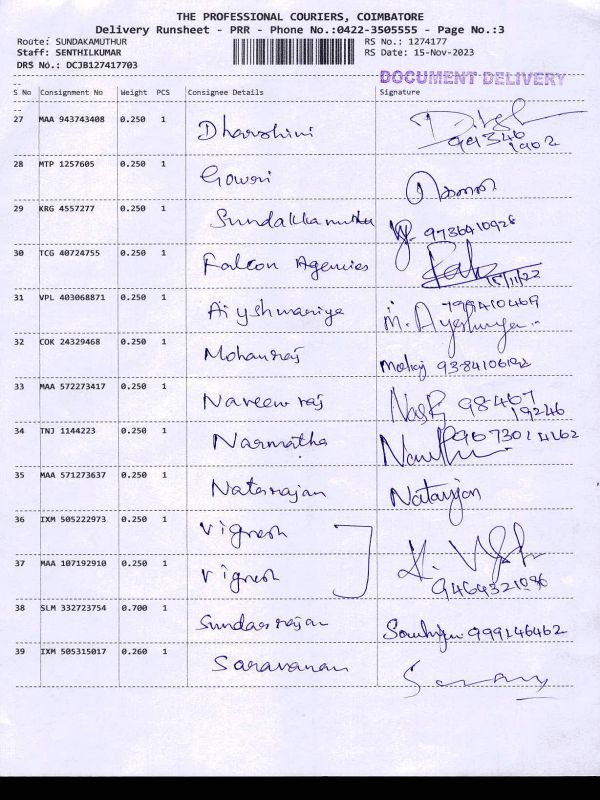 THE PROFESSIONAL COURIERS, COIMBATORE
Delivery Runsheet - PRR - Phone No.:0422-3505555 - Page No.:3
Route: SUNDAKAMUTHUR RS No.: 1274177
Staff: SENTHILKUMAR RS Date: 15-Nov-2023
DRS No.: DCJB127417703
DOCUMENT DELIVERY
S No Consignment No Weight PCS Consignee Details Signature
27 MAA 943743408 0.250 1 Dharshini
99346
1902
28 MTP 1257605 0.250 1 Gowri
29 KRG 4557277 0.250 1 Sundakkamuthu 9736410928
30 TCG 40724755 0.250 1 Falcon Agencies 15/11/22
31 VPL 403068871 0.250 1 Aiyshwariya
32 COK 24329468 0.250 1 Mohanraj 9384106192
33 MAA 572273417 0.250 1 Naveen raj 98467
19246
34 TNJ 1144223 0.250 1 Narmatha
35 MAA 571273637 0.250 1 Natarajan Natarajan
36 IXM 505222973 0.250 1 Vignesh
37 MAA 107192910 0.250 1 Vignesh 9464321096
38 SLM 332723754 0.700 1 Sundarrajan 999146462
39 IXM 505315017 0.260 1 Saravanan